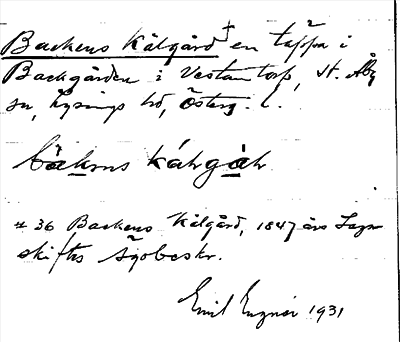 Backens Kålgård † en täppa i
Backgården i Västantorp, St. Åby
sn, Lysings hd, Österg. l.
bàkens kåłrgàłr
# 36 Backens Kålgård, 1847 års Laga
skiftes Ägobeskr.
Emil 1931